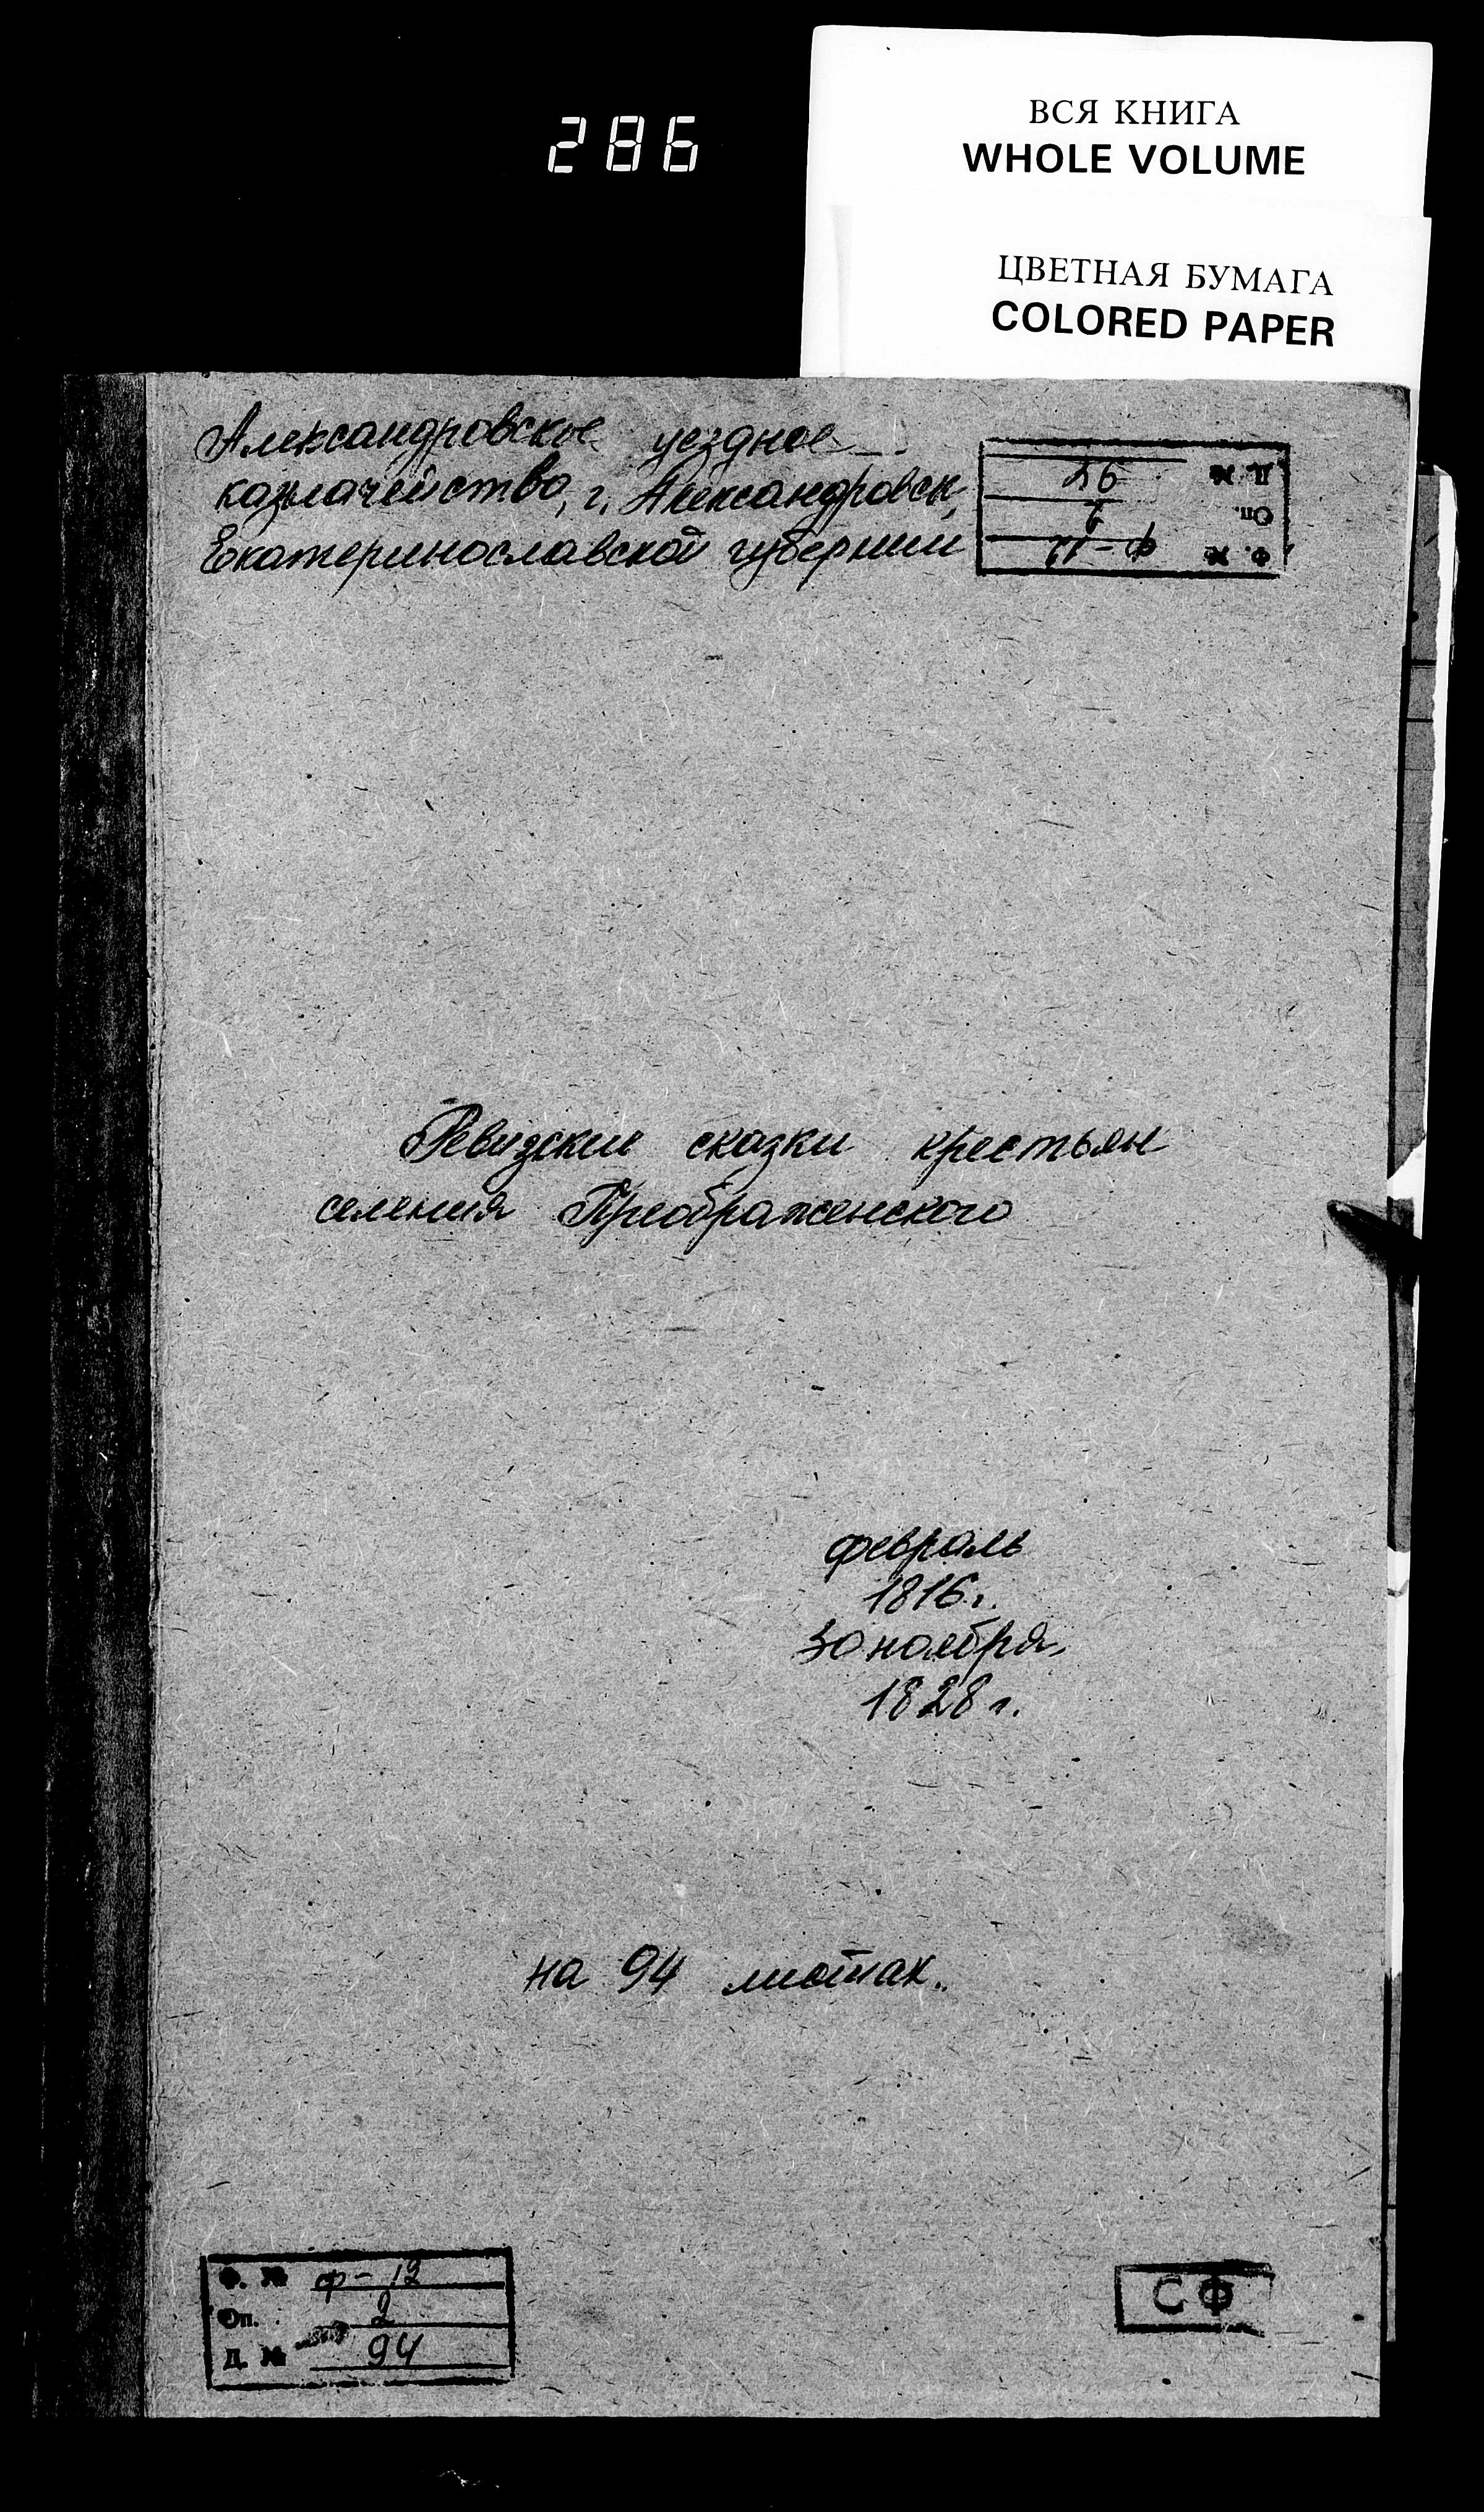 286
ВСЯ КНИГА
WHOLE VOLUME
ЦВЕТНАЯ БУМАГА
COLORED PAPER
Александровское уездное
казначейство, г. Александровск,
Екатеринославской губернии
Ф. № ф-12
Оп. 2
Д. № 94
Ревизские сказки крестьян
селения Преображенского
февраль
1816 г.
30 ноября
1828 г.
на 94 листах.
Ф. № ф-12
Оп. 2
Д. № 94
СФ